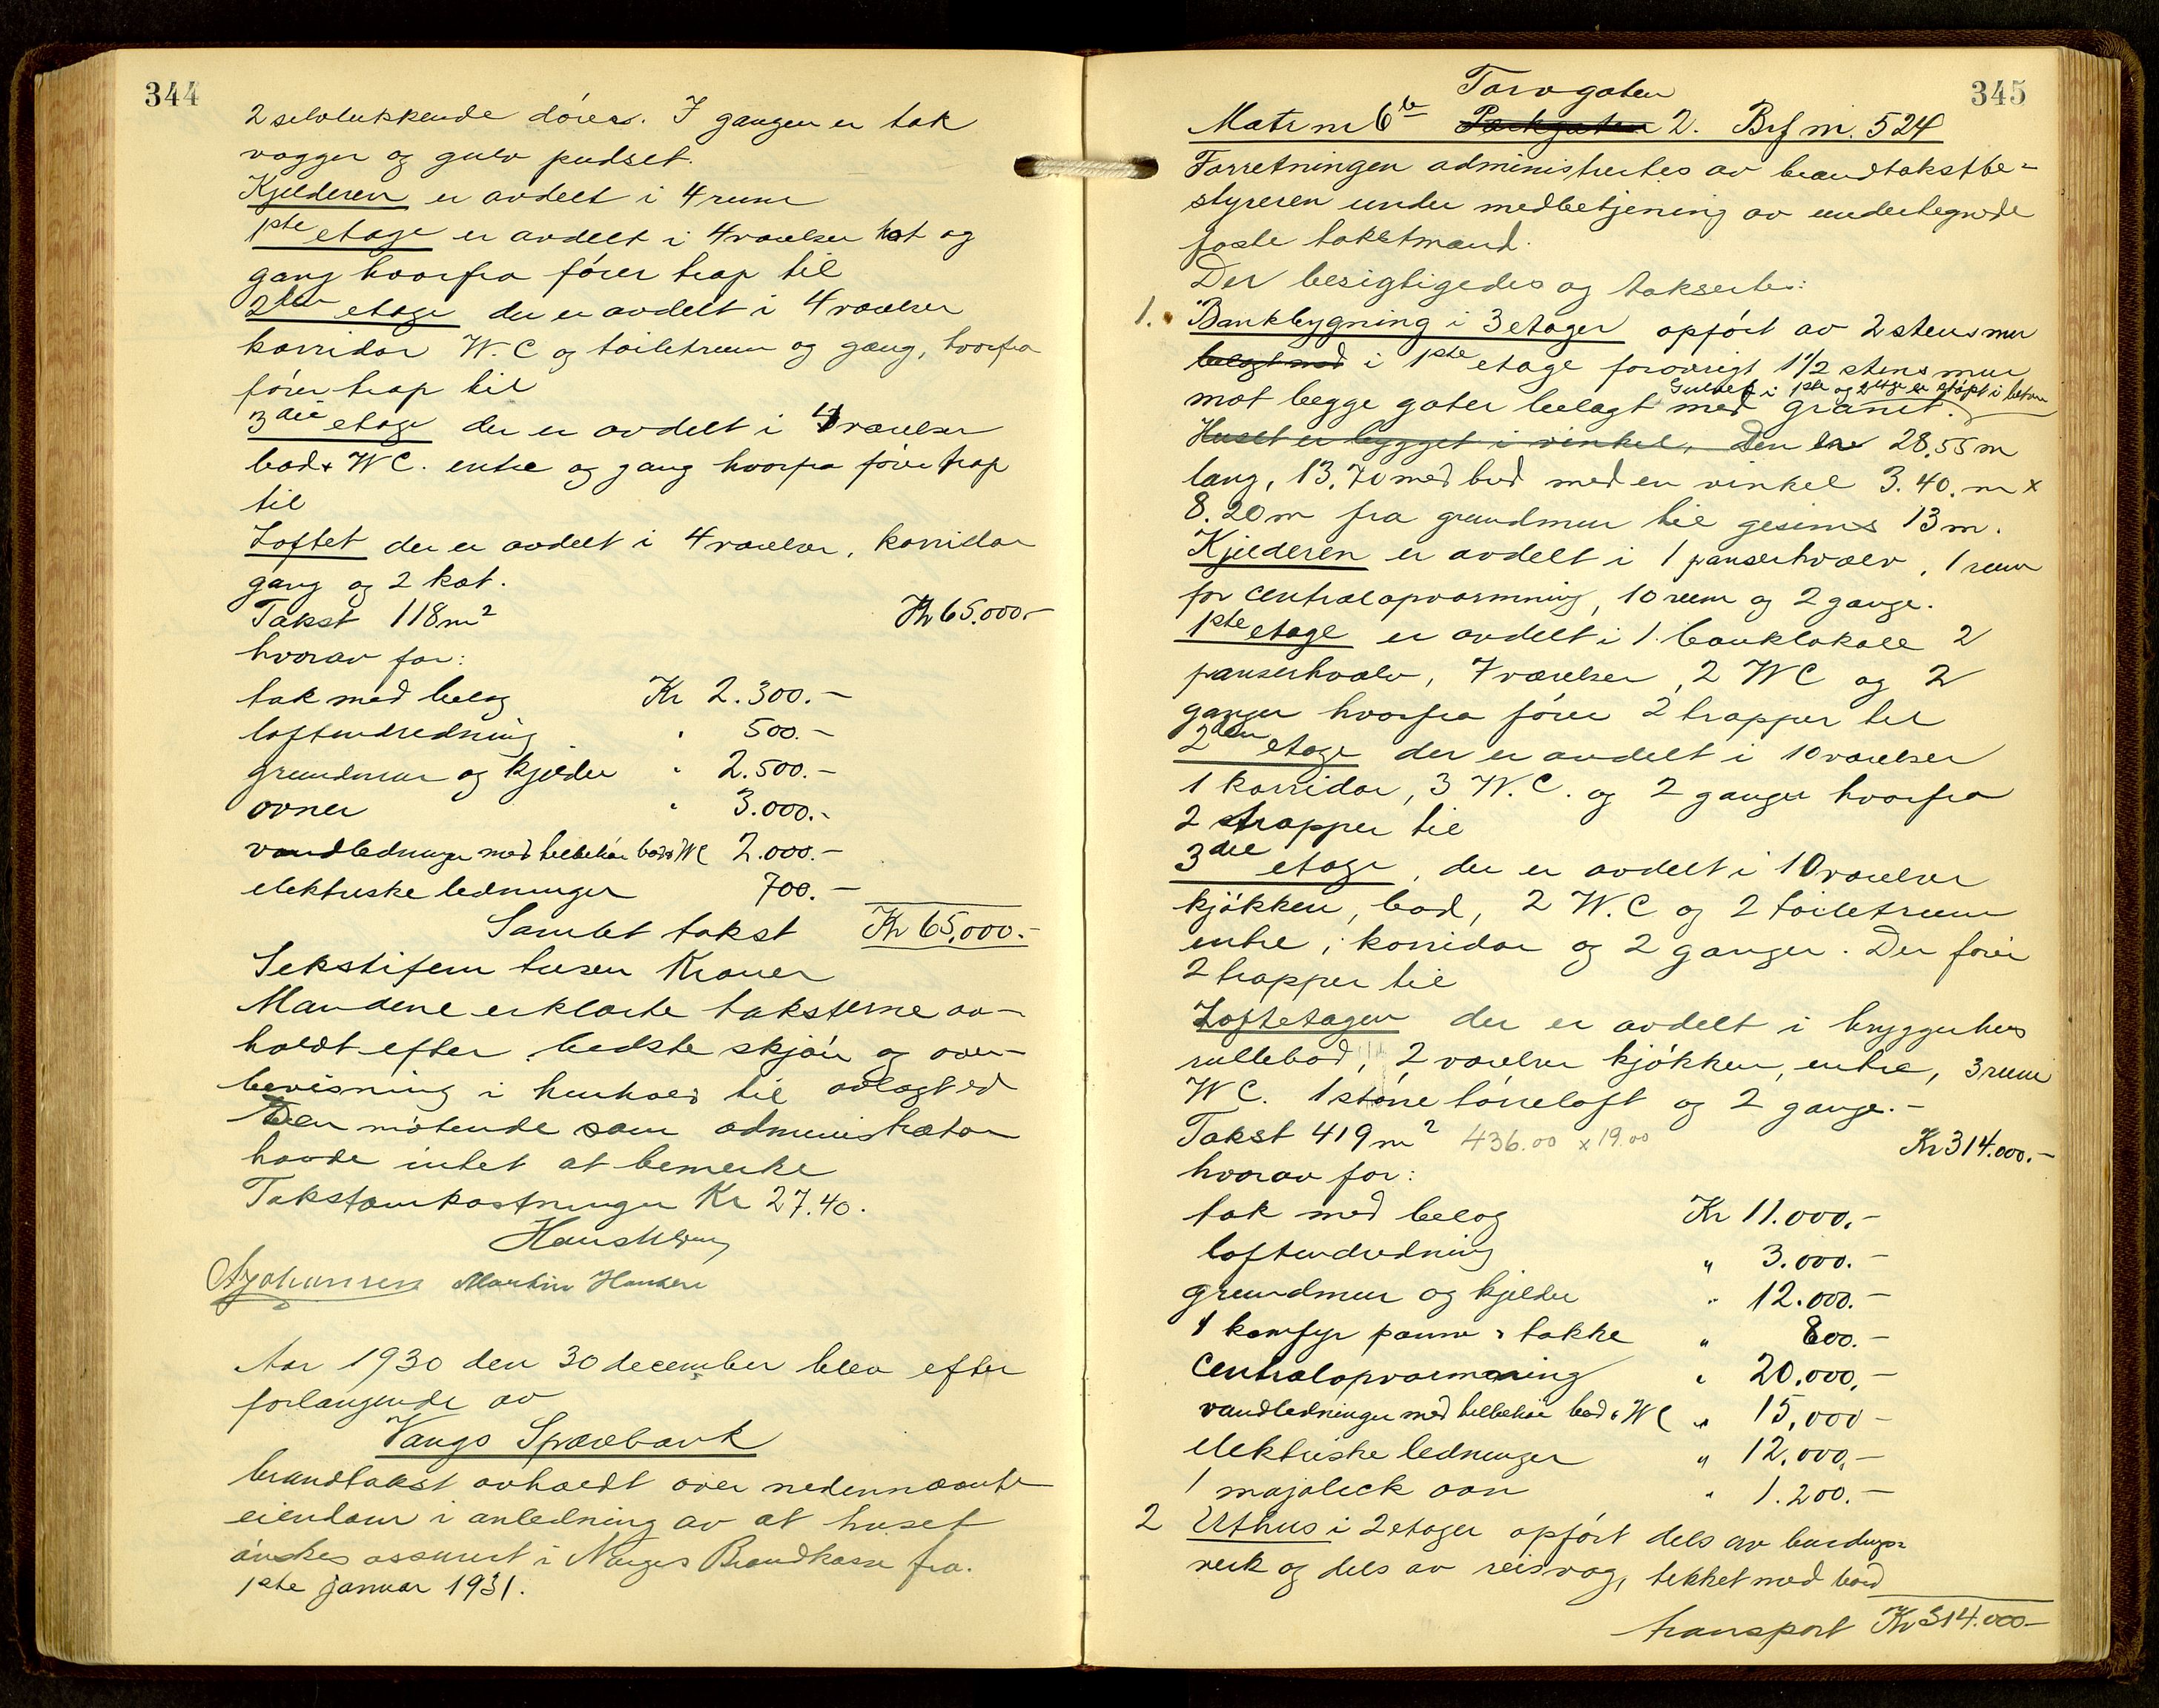 344
2 selvlukkende dører. I gangen er tak
vægger og gulv pudset.
Kjelderen er avdelt i 4 rum
1ste etage er avdelt i 4 værelser kot og
gang hvorfra fører trap til
2den etage der er avdelt i 4 værelser
korridor W.C og toiletrum og gang, hvorfra
fører trap til
3die etage der er avdelt i 4 værelser
bad & WC. entre og gang hvorfra fører trap
til
Loftet der er avdelt i 4 værelser, korridor
gang og 2 kot.
Takst 118 m² Kr 65.000.-
hvorav for:
tak med belæg Kr 2.300.-
loftindredning " 500.-
grundmur og kjelder " 2.500.-
ovner " 3.000.-
vandledninger med tilbehør bad & WC 2.000.-
elektriske ledninger 700.-
Samlet takst Kr 65.000.-
Sekstifem tusen Kroner
Mændene erklærte taksterne av-
holdt efter bedste skjøn og over-
bevisning i henhold til avlagt ed
Den møtende som administrator
havde intet at bemerke
Takstomkostninger Kr 27.40.
Hans
A Johansen Martin Hansen
Aar 1930 den 30 december blev efter
forlangende av
Vangs Sparebank
brandtakst avholdt over nedennævnte
eiendom i anledning av at huset
ønskes assurert i Norges Brandkasse fra
1ste januar 1931.
345
Torvgaten
Matr nr 6b Parkgaten 2. Brf nr. 524
Forretningen administrertes av brandtakstbe-
styreren under medbetjening av undertegnede
faste takstmænd.
Der besigtigedes og taksertes:
1. Bankbygning i 3 etager opført av 2 stens mur
belagt med i 1ste etage forøvrigt 1 1/2 stens mur
Gulvet i 1ste og 2 etge er støpt i beton
mot begge gater belagt med granit.
Huset er bygget i vinkel, Den er 28.55 m
lang, 13.70 med bred med en vinkel 3.40. m x
8.20 m fra grundmur til gesims 13 m.
Kjelderen er avdelt i 1 panserhvælv, 1 rum
for centralopvarmning, 10 rum og 2 gange.
1ste etage er avdelt i 1 banklokale 2
panserhvælv, 7 værelser, 2 WC og 2
ganger hvorfra fører 2 trapper til
2den etage der er avdelt i 10 værelser
1 korridor, 3 W.C. og 2 ganger hvorfra
2 trapper til
3die etage, der er avdelt i 10 værelser
kjøkken, bad, 2 W.C og 2 toiletrum
entre, korridor og 2 ganger. Der fører
2 trapper til
Loftetagen der er avdelt i bryggerhus
rullebod, 2 værelser kjøkken, entre, 3 rum
WC. 1 større tørreloft og 2 gange.-
Takst 419 m² 436.00 x 19.00 Kr 314.000.-
hvorav for:
tak med belæg Kr 11.000.-
loftindredning " 3.000.-
grundmur og kjelder " 12.000.-
1 komfyr panne & takke " 800.-
Centralopvarmning " 20.000.-
vandledninger med tilbehør bad & WC " 15,000-
elektriske ledninger " 12.000.-
1 majolick ovn " 1.200.-
2 Uthus i 2 etager opført dels av bindings-
verk og dels av reisvæg, tekket med bord
transport Kr 314.000-